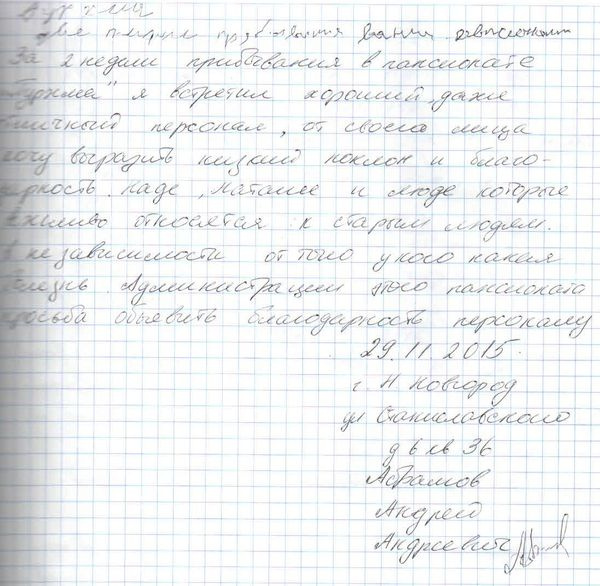 две недели пребывания
За 2 недели прибывания в пансионате
я встретил хороший даже
личный персонал, от своего лица
хочу выразить низкий поклон и благо-
дарность наде, наташе и люде которые
вежливо относятся к старым людям.
В не зависимости от того у кого какая
болезнь. Администрации этого пансионата
просьба обьевить благодарность персоналу
29.11 2015.
г. Н Новгород
ул Станиславского
д 6 кв 36
Абрамов
Андрей
Андреевич